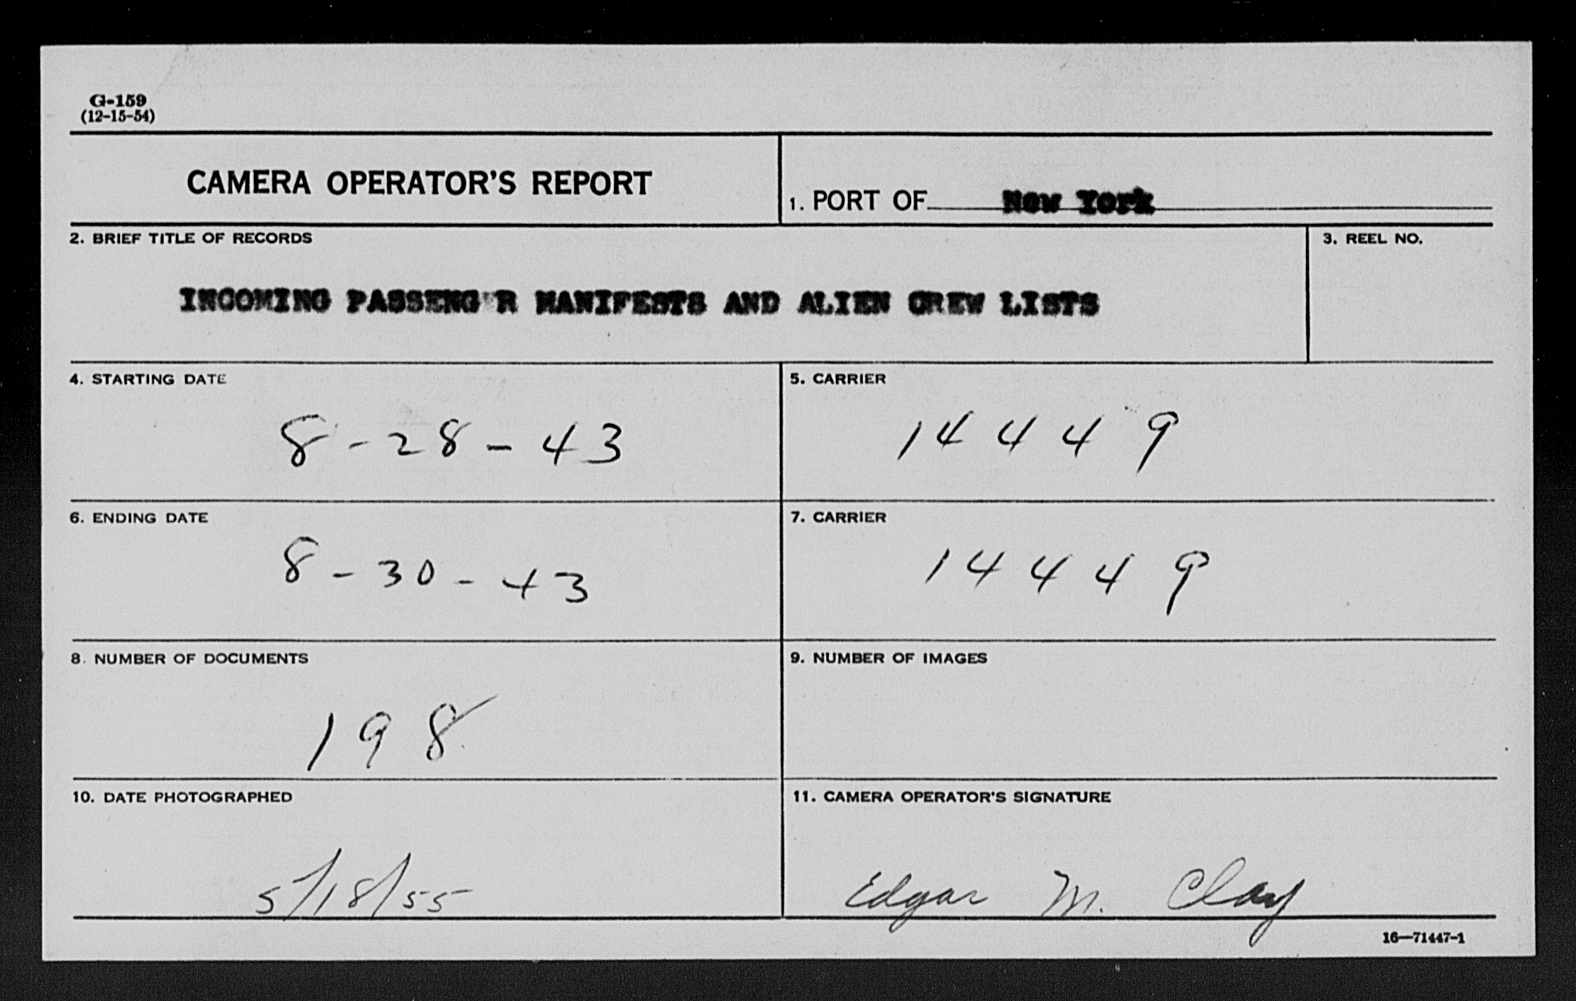 G-159
(12-15-54)
CAMERA OPERATOR'S REPORT
1. PORT OF New York
2. BRIEF TITLE OF RECORDS
3. REEL NO.
INCOMING PASSENG'R MANIFESTS AND ALIEN CREW LISTS
4. STARTING DATE
5. CARRIER
8-28-43
14449
6. ENDING DATE
7. CARRIER
8-30-43
14449
8. NUMBER OF DOCUMENTS
9. NUMBER OF IMAGES
198
10. DATE PHOTOGRAPHED
11. CAMERA OPERATOR'S SIGNATURE
5/18/55
Edgar M. Clay
16—71447-1